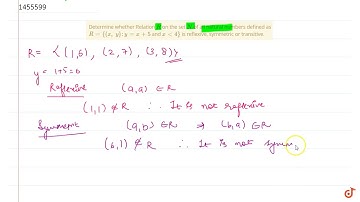 1455599
Determine whether Relation R on the set N of all natural numbers defined as
R = {(x, y): y = x + 5 and x < 4} is reflexive, symmetric or transitive.
R = {(1,6), (2,7), (3,8)}
y = 1+5=6
Reflexive (a,a) ∈ R
(1,1) ∉ R ∴ It is not reflexive
Symmetric (a,b) ∈ R ⇒ (b,a) ∈ R
(6,1) ∉ R ∴ It is not symm